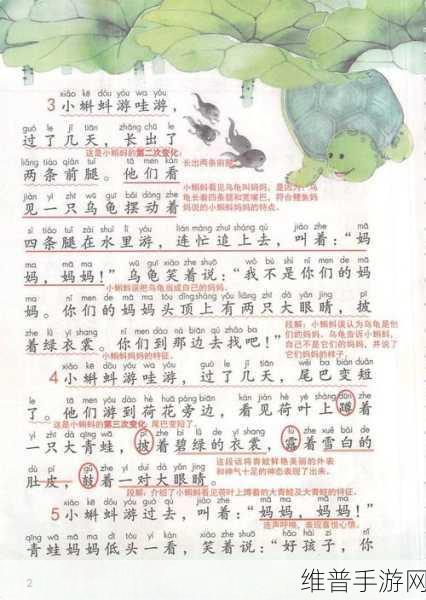 xiǎo kē dǒu yóu wa yóu
3 小蝌蚪游哇游，
guò le jǐ tiān zhǎng chū le
过了几天，长出了
这是小蝌蚪的第二次变化：长出两条前腿。
liǎng tiáo qián tuǐ tā men kàn
两条前腿。他们看
小蝌蚪看见乌龟叫妈妈，是因为：乌龟长着四条腿和宽嘴巴，符合鲤鱼妈妈说的小蝌蚪妈妈的特点。
jiàn yì zhī wū guī bǎi dòng zhe
见一只乌龟摆动着
sì tiáo tuǐ zài shuǐ lǐ yóu lián máng zhuī shàng qù jiào zhe mā
四条腿在水里游，连忙追上去，叫着：“妈
ma mā ma wū guī xiào zhe shuō wǒ bú shì nǐ men de mā
妈，妈妈！”乌龟笑着说：“我不是你们的妈
小蝌蚪误把乌龟当成自己的妈妈。
ma nǐ men de mā ma tóu dǐng shàng yǒu liǎng zhī dà yǎn jing pī
妈。你们的妈妈头顶上有两只大眼睛，披
段解：小蝌蚪误认为乌龟是他们的妈妈，乌龟告诉小蝌蚪，自己不是它们的妈妈，并说了它们妈妈的样子。
zhe lǜ yī shang nǐ men dào nà biān qù zhǎo ba
着绿衣裳。你们到那边去找吧！”
小蝌蚪妈妈的特征。
4 小蝌蚪游哇游，过了几天，尾巴变短
le tā men yóu dào hé huā páng biān kàn jiàn hé yè shàng dūn zhe
了。他们游到荷花旁边，看见荷叶上蹲着
这是小蝌蚪的第三次变化：尾巴变短了。
yì zhī dà qīng wā pī zhe bì lǜ de yī shang lù zhe xuě bái de
一只大青蛙，披着碧绿的衣裳，露着雪白的
这段话将青蛙鲜艳美丽的外表和神气十足的神态表现了出来。
dù pí gǔ zhe yí duì dà yǎn jing
肚皮，鼓着一对大眼睛。
段解：介绍了小蝌蚪看见荷叶上蹲着的大青蛙及大青蛙的特征。
5 小蝌蚪游过去，叫着：“妈妈，妈妈！”
连声呼唤，表现喜悦心情。
qīng wā mā ma dī tóu yí kàn xiào zhe shuō hǎo hái zi nǐ
青蛙妈妈低头一看，笑着说：“好孩子，你
2
维普手游网